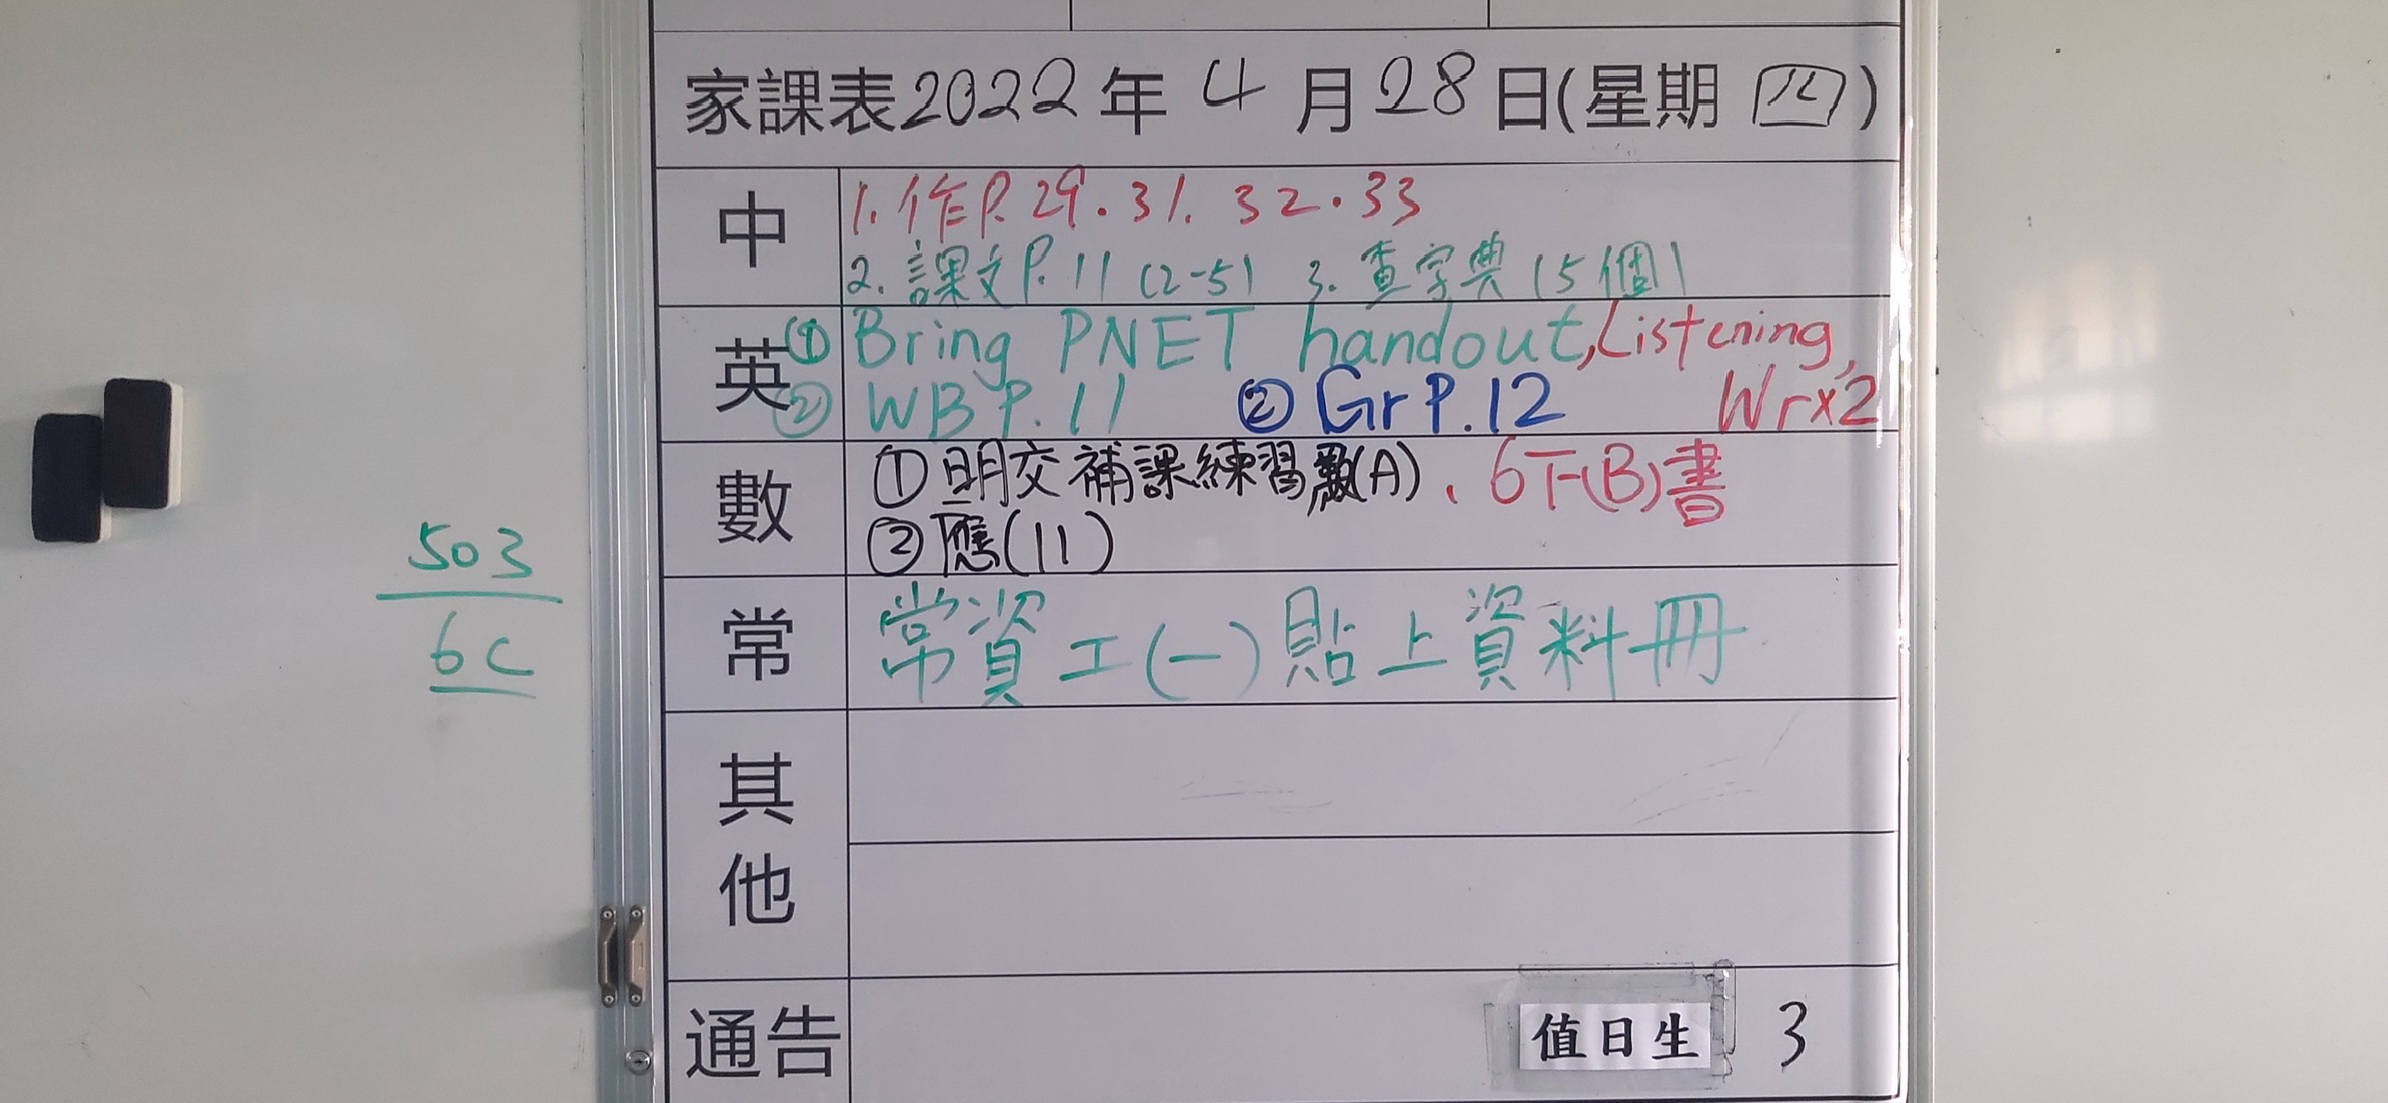 家課表2022年4月28日(星期四)
中
1. 作P. 29. 31. 32. 33
2. 課文P. 11 (2-5) 3. 查字典 (5個)
英
① Bring PNET handout, Listening,
② WB P. 11 ② Gr P. 12 Wr x2
數
① 明交補課練習數(A)、6下(B)書
② 應(11)
503
6C
常
常資工(一)貼上資料冊
其他
通告
值日生 3